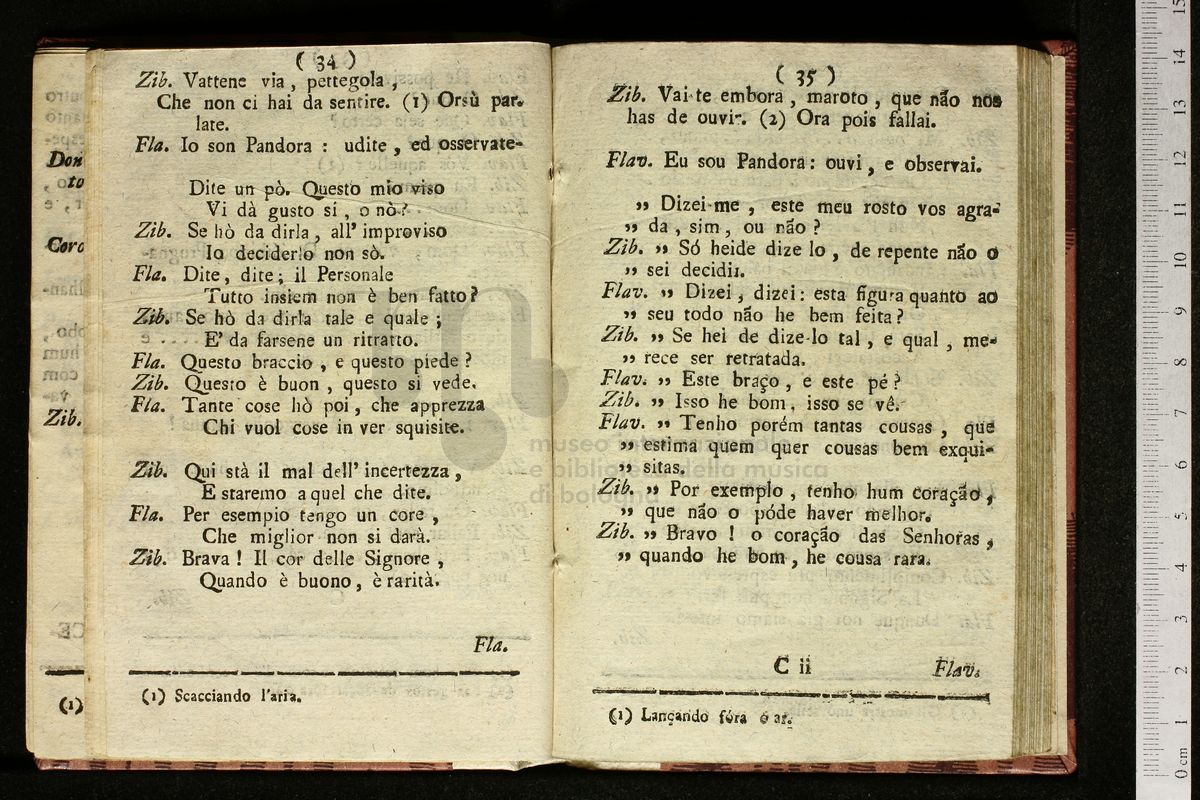 outro
Don
to
r, e
Coro
Zib.
(1)
( 34 )
Zib. Vattene via, pettegola,
Che non ci hai da sentire. (1) Orsù par-
late.
Fla. Io son Pandora : udite, ed osservate-
Dite un pò. Questo mio viso
Vi dà gusto si, o nò?
Zib. Se hò da dirla, all' improviso
Io deciderlo non sò.
Fla. Dite, dite; il Personale
Tutto insiem non è ben fatto?
Zib. Se hò da dirla tale e quale;
E' da farsene un ritratto.
Fla. Questo braccio, e questo piede?
Zib. Questo è buon, questo si vede.
Fla. Tante cose hò poi, che apprezza
Chi vuol cose in ver squisite.
Zib. Qui stà il mal dell' incertezza,
E staremo a quel che dite.
Fla. Per esempio tengo un core,
Che miglior non si darà.
Zib. Brava! Il cor delle Signore,
Quando è buono, è rarità.
Fla.
(1) Scacciando l'aria.
( 35 )
Zib. Vai-te embora, maroto, que não nos
has de ouvir. (2) Ora pois fallai.
Flav. Eu sou Pandora: ouvi, e observai.
„ Dizei-me, este meu rosto vos agra-
„ da, sim, ou não?
Zib. „ Só heide dize lo, de repente não o
„ sei decidir.
Flav. „ Dizei, dizei: esta figura quanto ao
„ seu todo não he bem feita?
Zib. „ Se hei de dize-lo tal, e qual, me-
„ rece ser retratada.
Flav. „ Este braço, e este pé?
Zib. „ Isso he bom, isso se vê.
Flav. „ Tenho porém tantas cousas, que
„ estima quem quer cousas bem exqui-
„ sitas.
Zib. „ Por exemplo, tenho hum coração,
„ que não o póde haver melhor.
Zib. „ Bravo! o coração das Senhoras,
„ quando he bom, he cousa rara.
C ii Flav.
(1) Lançando fóra o ar.
museo internazionale
e biblioteca della musica
di bologna
0 cm 1 2 3 4 5 6 7 8 9 10 11 12 13 14 15